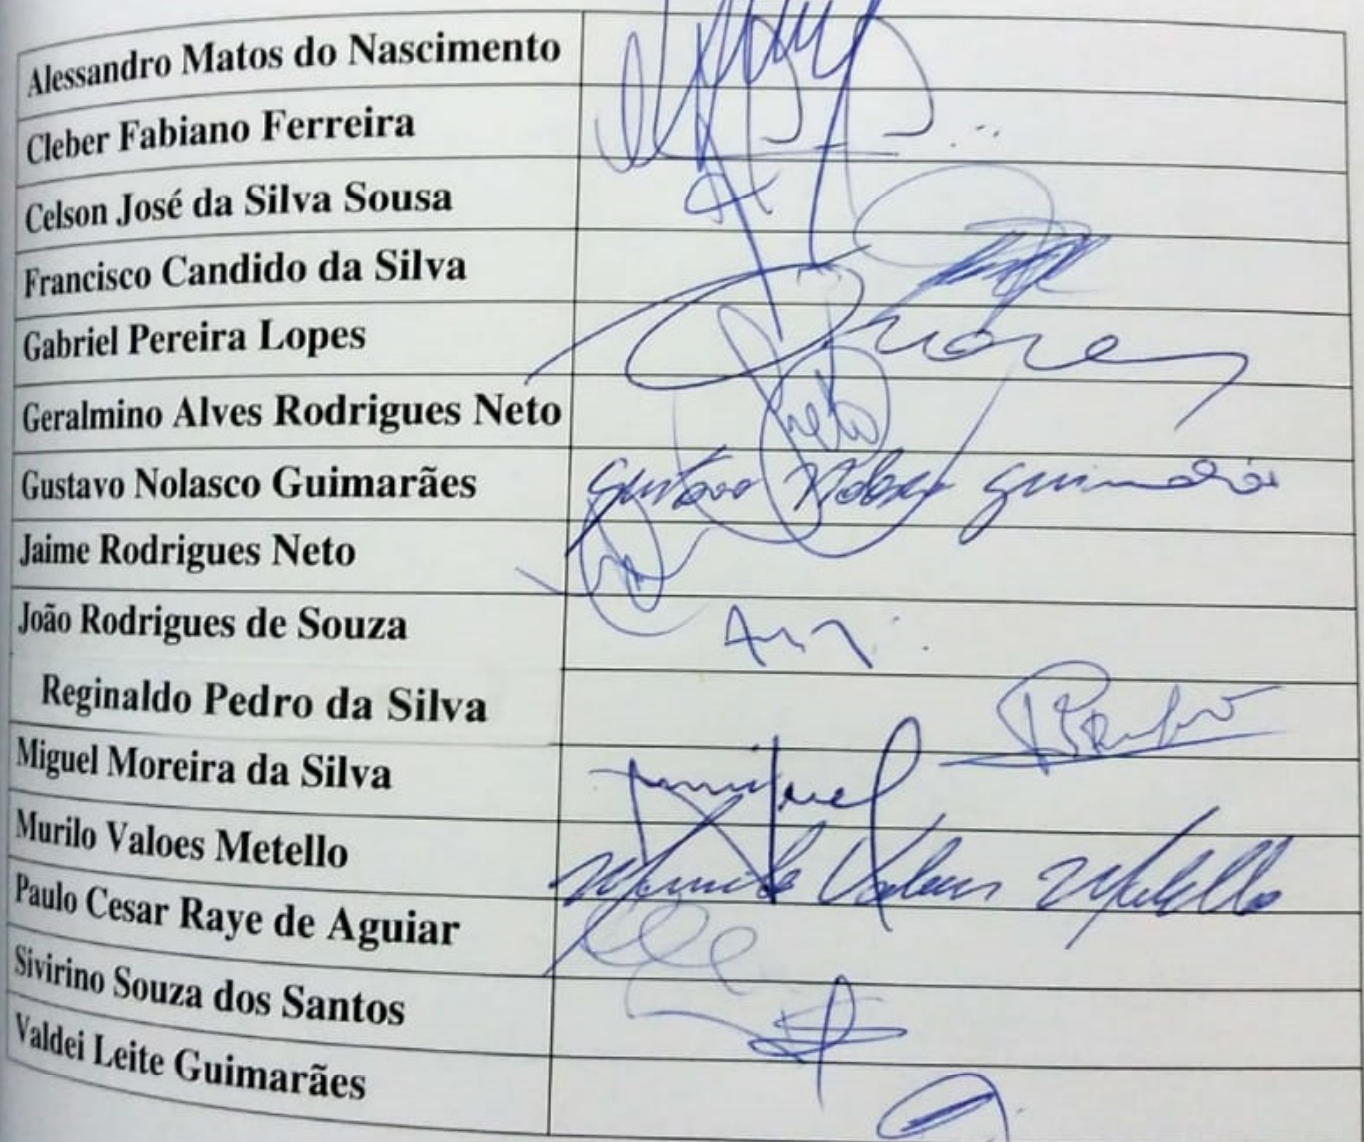 Alessandro Matos do Nascimento
Cleber Fabiano Ferreira
Celson José da Silva Sousa
Francisco Candido da Silva
Gabriel Pereira Lopes
Geralmino Alves Rodrigues Neto
Neto
Gustavo Nolasco Guimarães
Gustavo Nolasco Guimarães
Jaime Rodrigues Neto
João Rodrigues de Souza
Reginaldo Pedro da Silva
Miguel Moreira da Silva
miguel
Murilo Valoes Metello
Murilo Valoes Metello
Paulo Cesar Raye de Aguiar
Sivirino Souza dos Santos
Valdei Leite Guimarães